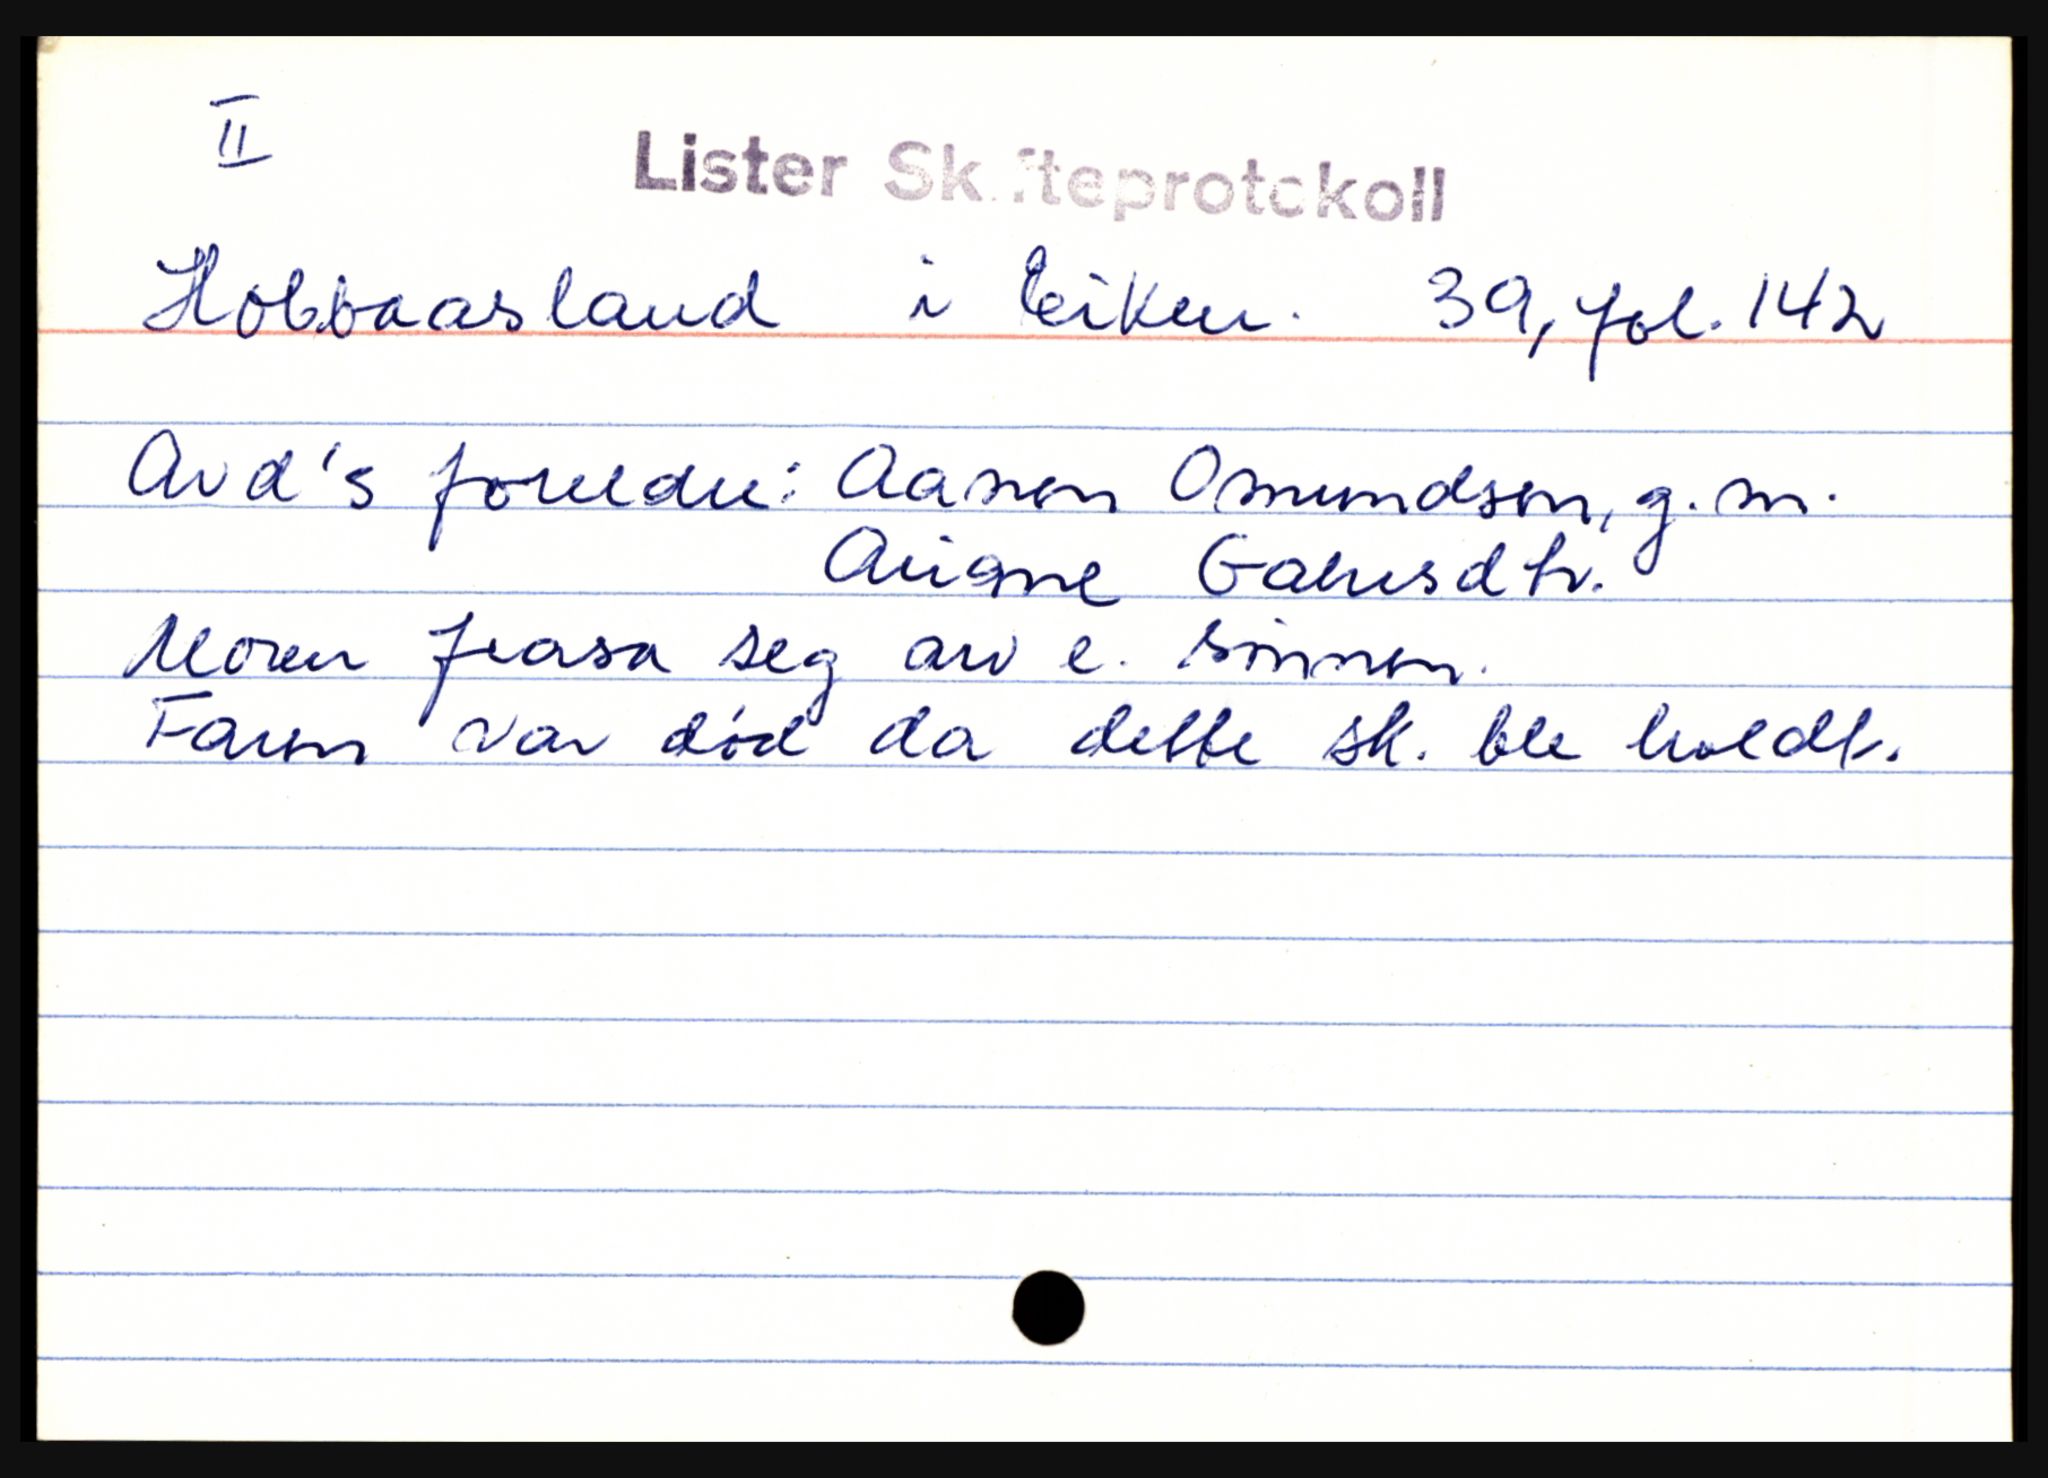 II
Lister Skifteprotokoll
Hobbaasland i Eiken. 39, fol. 142
Avd's foreldre: Aanen Omundsen, g.m.
Gabrisdtr.
Moren frasa seg arv e. sønnen.
Faren var død da dette sk. ble holdt.